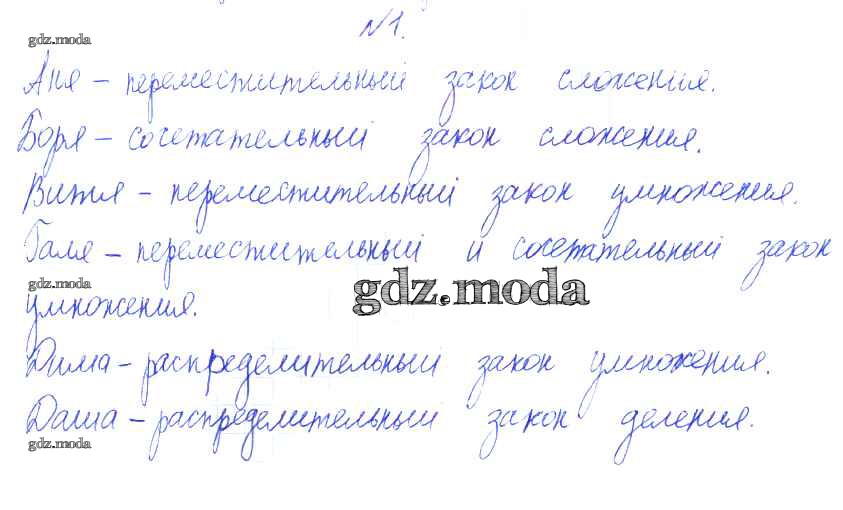 №1.
gdz.moda
Аня – переместительный закон сложения.
Боря – сочетательный закон сложения.
Витя – переместительный закон умножения.
Галя – переместительный и сочетательный закон
gdz.moda
gdz.moda
умножения.
Дима – распределительный закон умножения.
Даша – распределительный закон деления.
gdz.moda